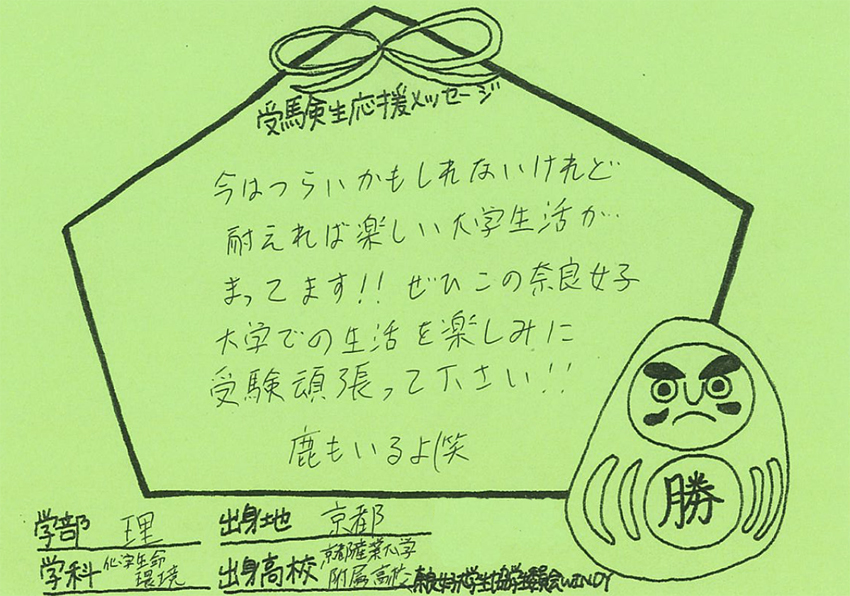 受験生応援メッセージ
今はつらいかもしれないけれど
耐えれば楽しい大学生活が
まってます!! ぜひこの奈良女子
大学での生活を楽しみに
受験頑張って下さい!!
鹿もいるよ(笑
勝
学部 理 出身地 京都
学科 化学生命環境 出身高校 京都産業大学附属高校
WINDY